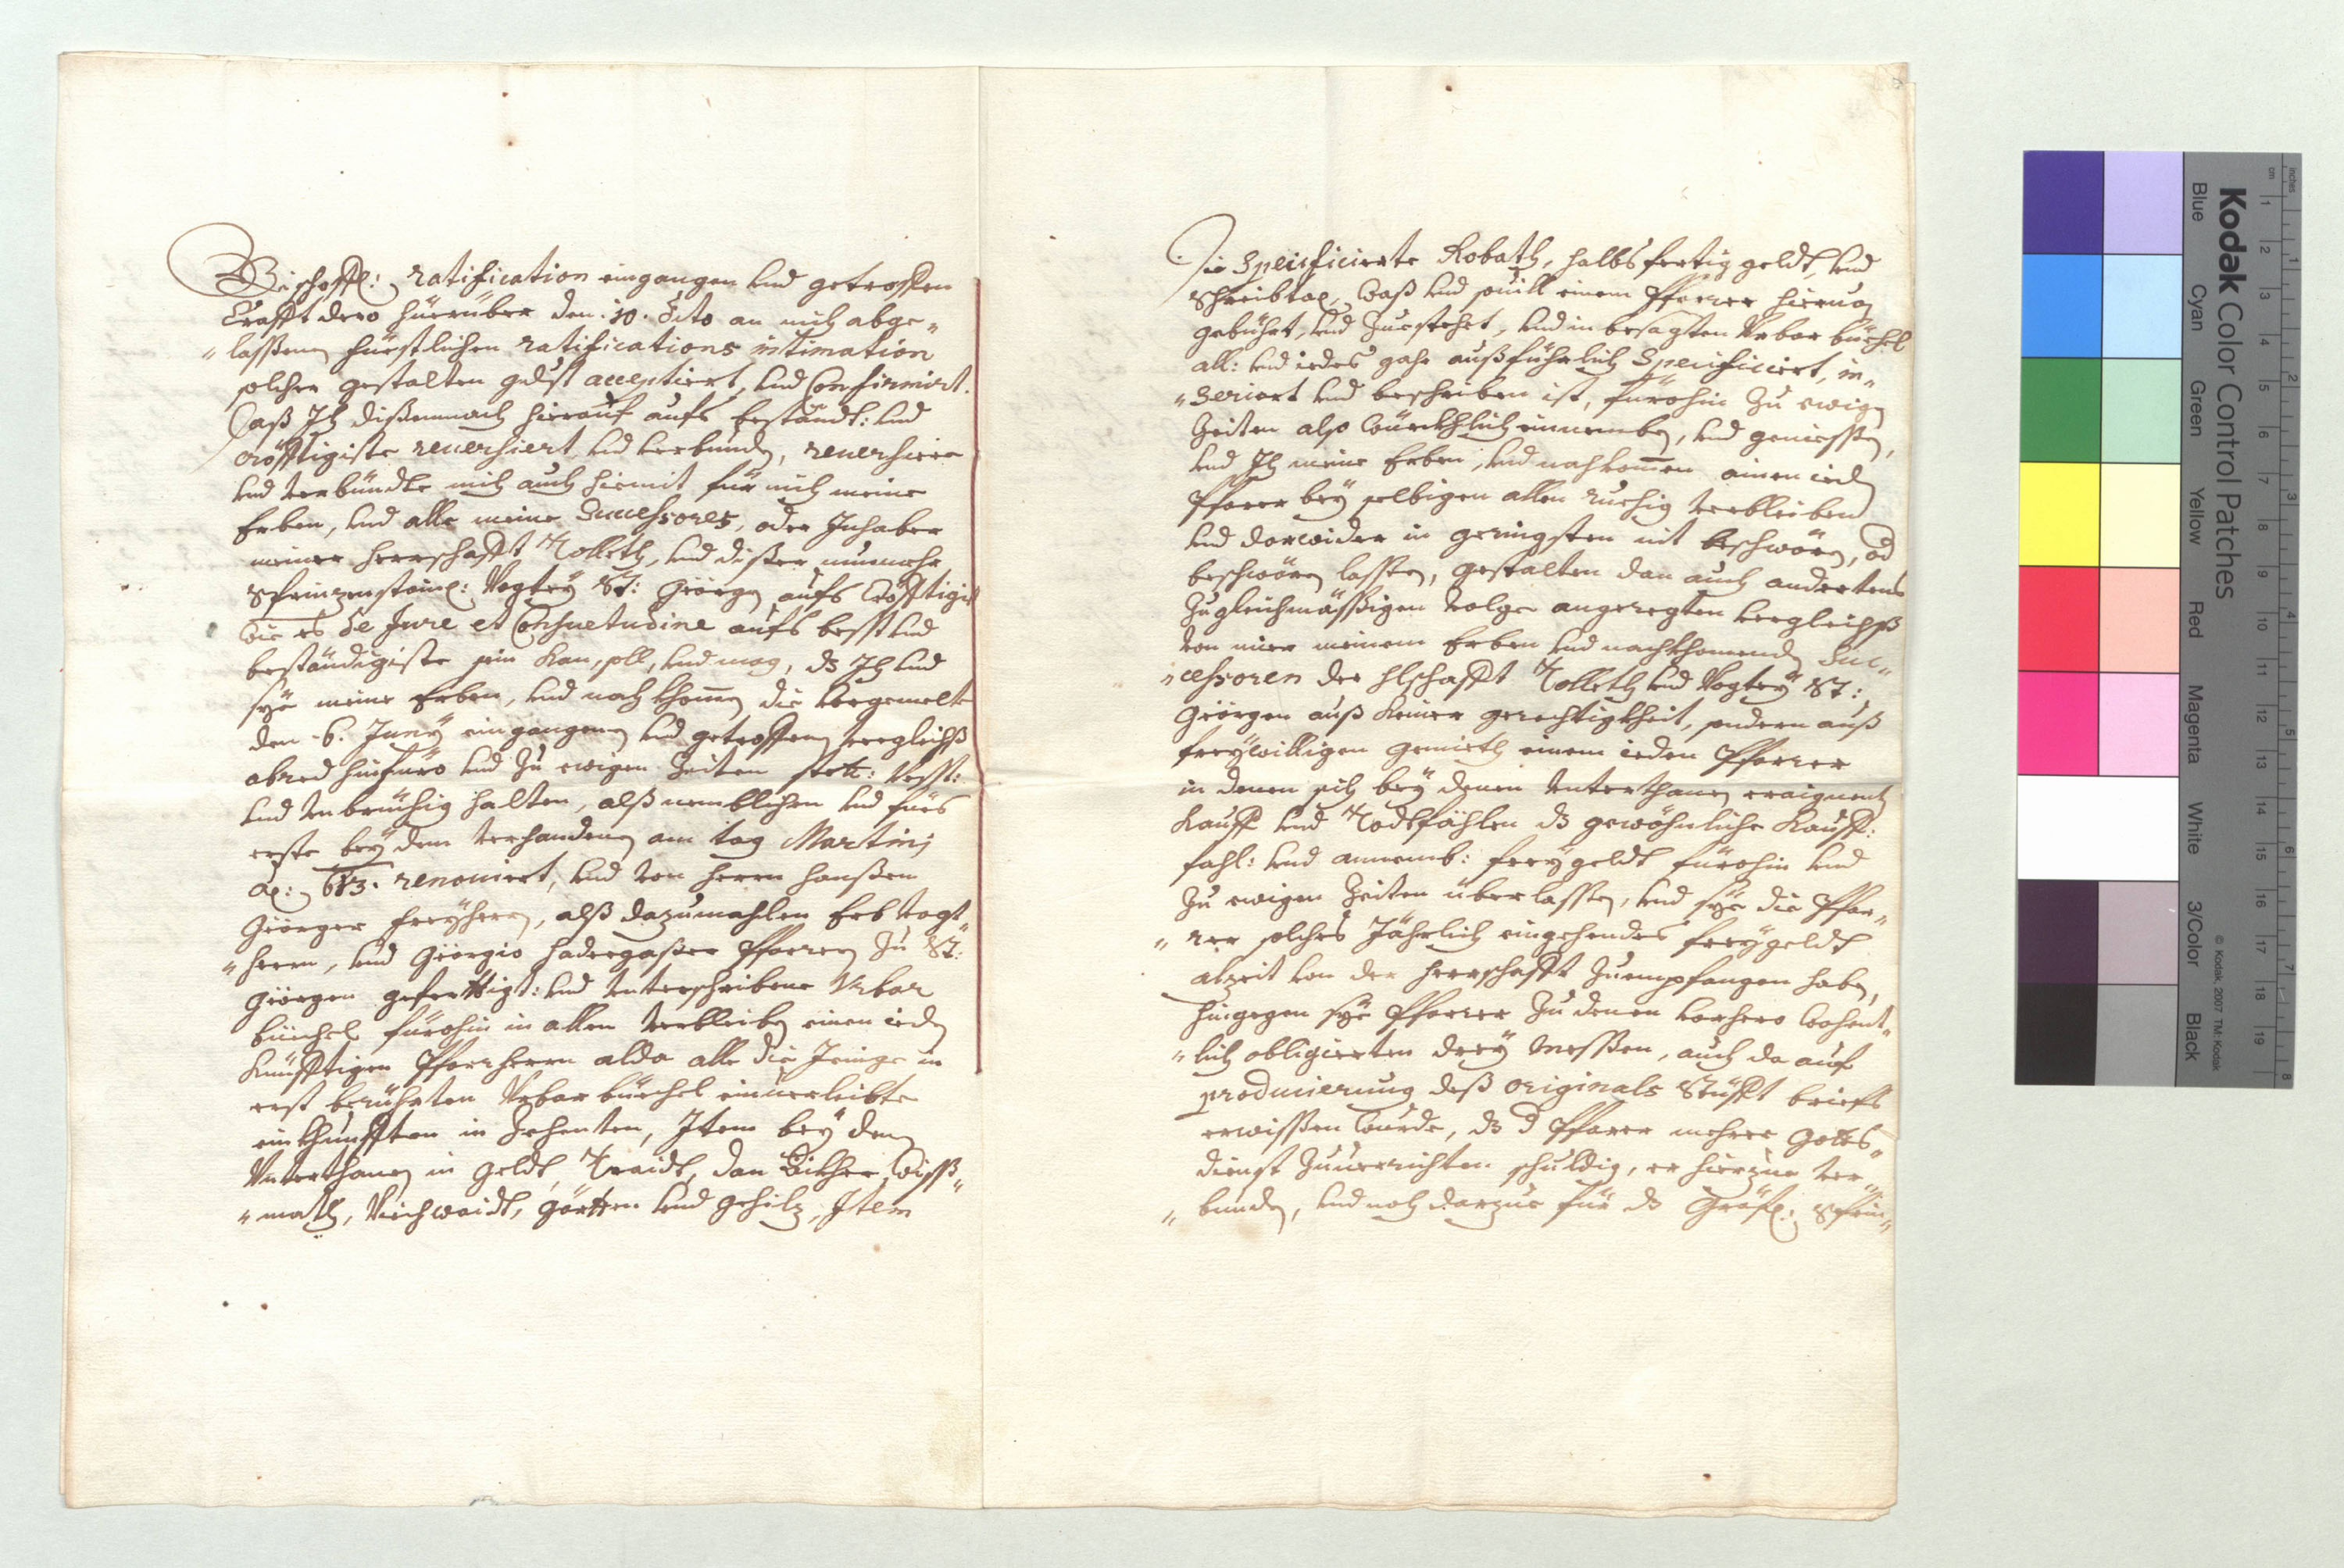 Bischoffl: ratification eingangen und getroffen
Crafft dero hierüber den .10. dito an mich abge„
„lassenen fürstlichen ratifications intimation
solcher gestalten acceptiert, und Confirmirt.
Daß Ich dißemnach hierauf aufs bestandt: und
cröfftigiste reuersiert, und verbunden, reuersiere
und verbündte mich auch hiemit für mich meine
Erben, und alle meine Successores, oder Inhaber
meiner herrschafft Tolleth, und dißer nunmehr
Sprinzenstainl: Vogtey St: Geörgen aufs cröfftigist
Wie es de Jure et Consuetudine aufs besst und
beständigiste sein kan, soll, und mag, dz Ich und
sye meine Erben, und nach khomen die vorgemelte
den .6. Juny eingangenen und getroffenen vergleichß
abred hinfüro und Zu ewigen Zeiten stett: vesst:
und vnbrüchig halten, alß nemblichen und fürs
erste bey dem verhandenen am tag Martinj
renouiert, und von herrn hanßen
Geörgen freyherrn, alß dazumahlen Erb vogt„
„herrn, und Geörgio hadergaßer Pfarrern Zu St:
Geörgen gefertligt: und vnterschribene Vrbar
büechel fürohin in allen verbleiben einen ieden
künfftigen Pfarrherrn alda alle die Jenige in
erst berührten Vrbar büechel einuerleibte
einkhunfften in Zehenten, Item bey denen
Vnterthanen in geldt, Traidt, dan Äckher, Wiss„
„math, Viechwaidt, gärtten und gehilz, Item
Die Specificierte Robath, halbs fertig geldt, und
Schreibtax, Waß und souill einem Pfarrer hieruon
gebührt, und Zuestehet, und in besagten Vrbar büechel
all: und iedes gahr außführlich Specificiert, in„
„seriert und beschriben ist, fürohin Zu ewigen
Zeiten also würckhlich einnemben, und geniessen,
und Ich meine Erben, und nachkomen ainen ieden
Pfarrer bey selbigen allen ruehig verbleiben
und darwider in geringsten nit beschwären, od
beschwären lassen, gestalten dan auch andertens
Zu gleichmässigen volge angeregten vergleichß
von mir meinem Erben und nachkhomenden Suc„
„cessoren der hlschafft Tolleth und Vogtey St:
Geörgen auß keiner gerechtigkheit, sondern auß
freywilligen gemieth einem ieden Pfarrer
in denen sich bey denen vnterthanen eraignenten
Kauff und Todtfählen dz gewöhnliche Kauff:
fahl: und annemb: freygeldt fürohin und
Zu ewigen Zeiten überlassen, und sye die Pfar„
„rer solches Jährlich eingehendes freygeldt
alzeit von der herrschafft Zuempfangen haben,
hingegen sye Pfarrer Zu denen vorhero wohent„
„lich obligierten drey Messen, auch da auf
producierung deß originals Stüfft briefs
erwissen wurde, dz d Pfarrer mehrer Gotts„
dienst Zuuerrichten schuldig, er hierzue ver„
„bunden, und noch darzue für dz Gräfl: Sprin„